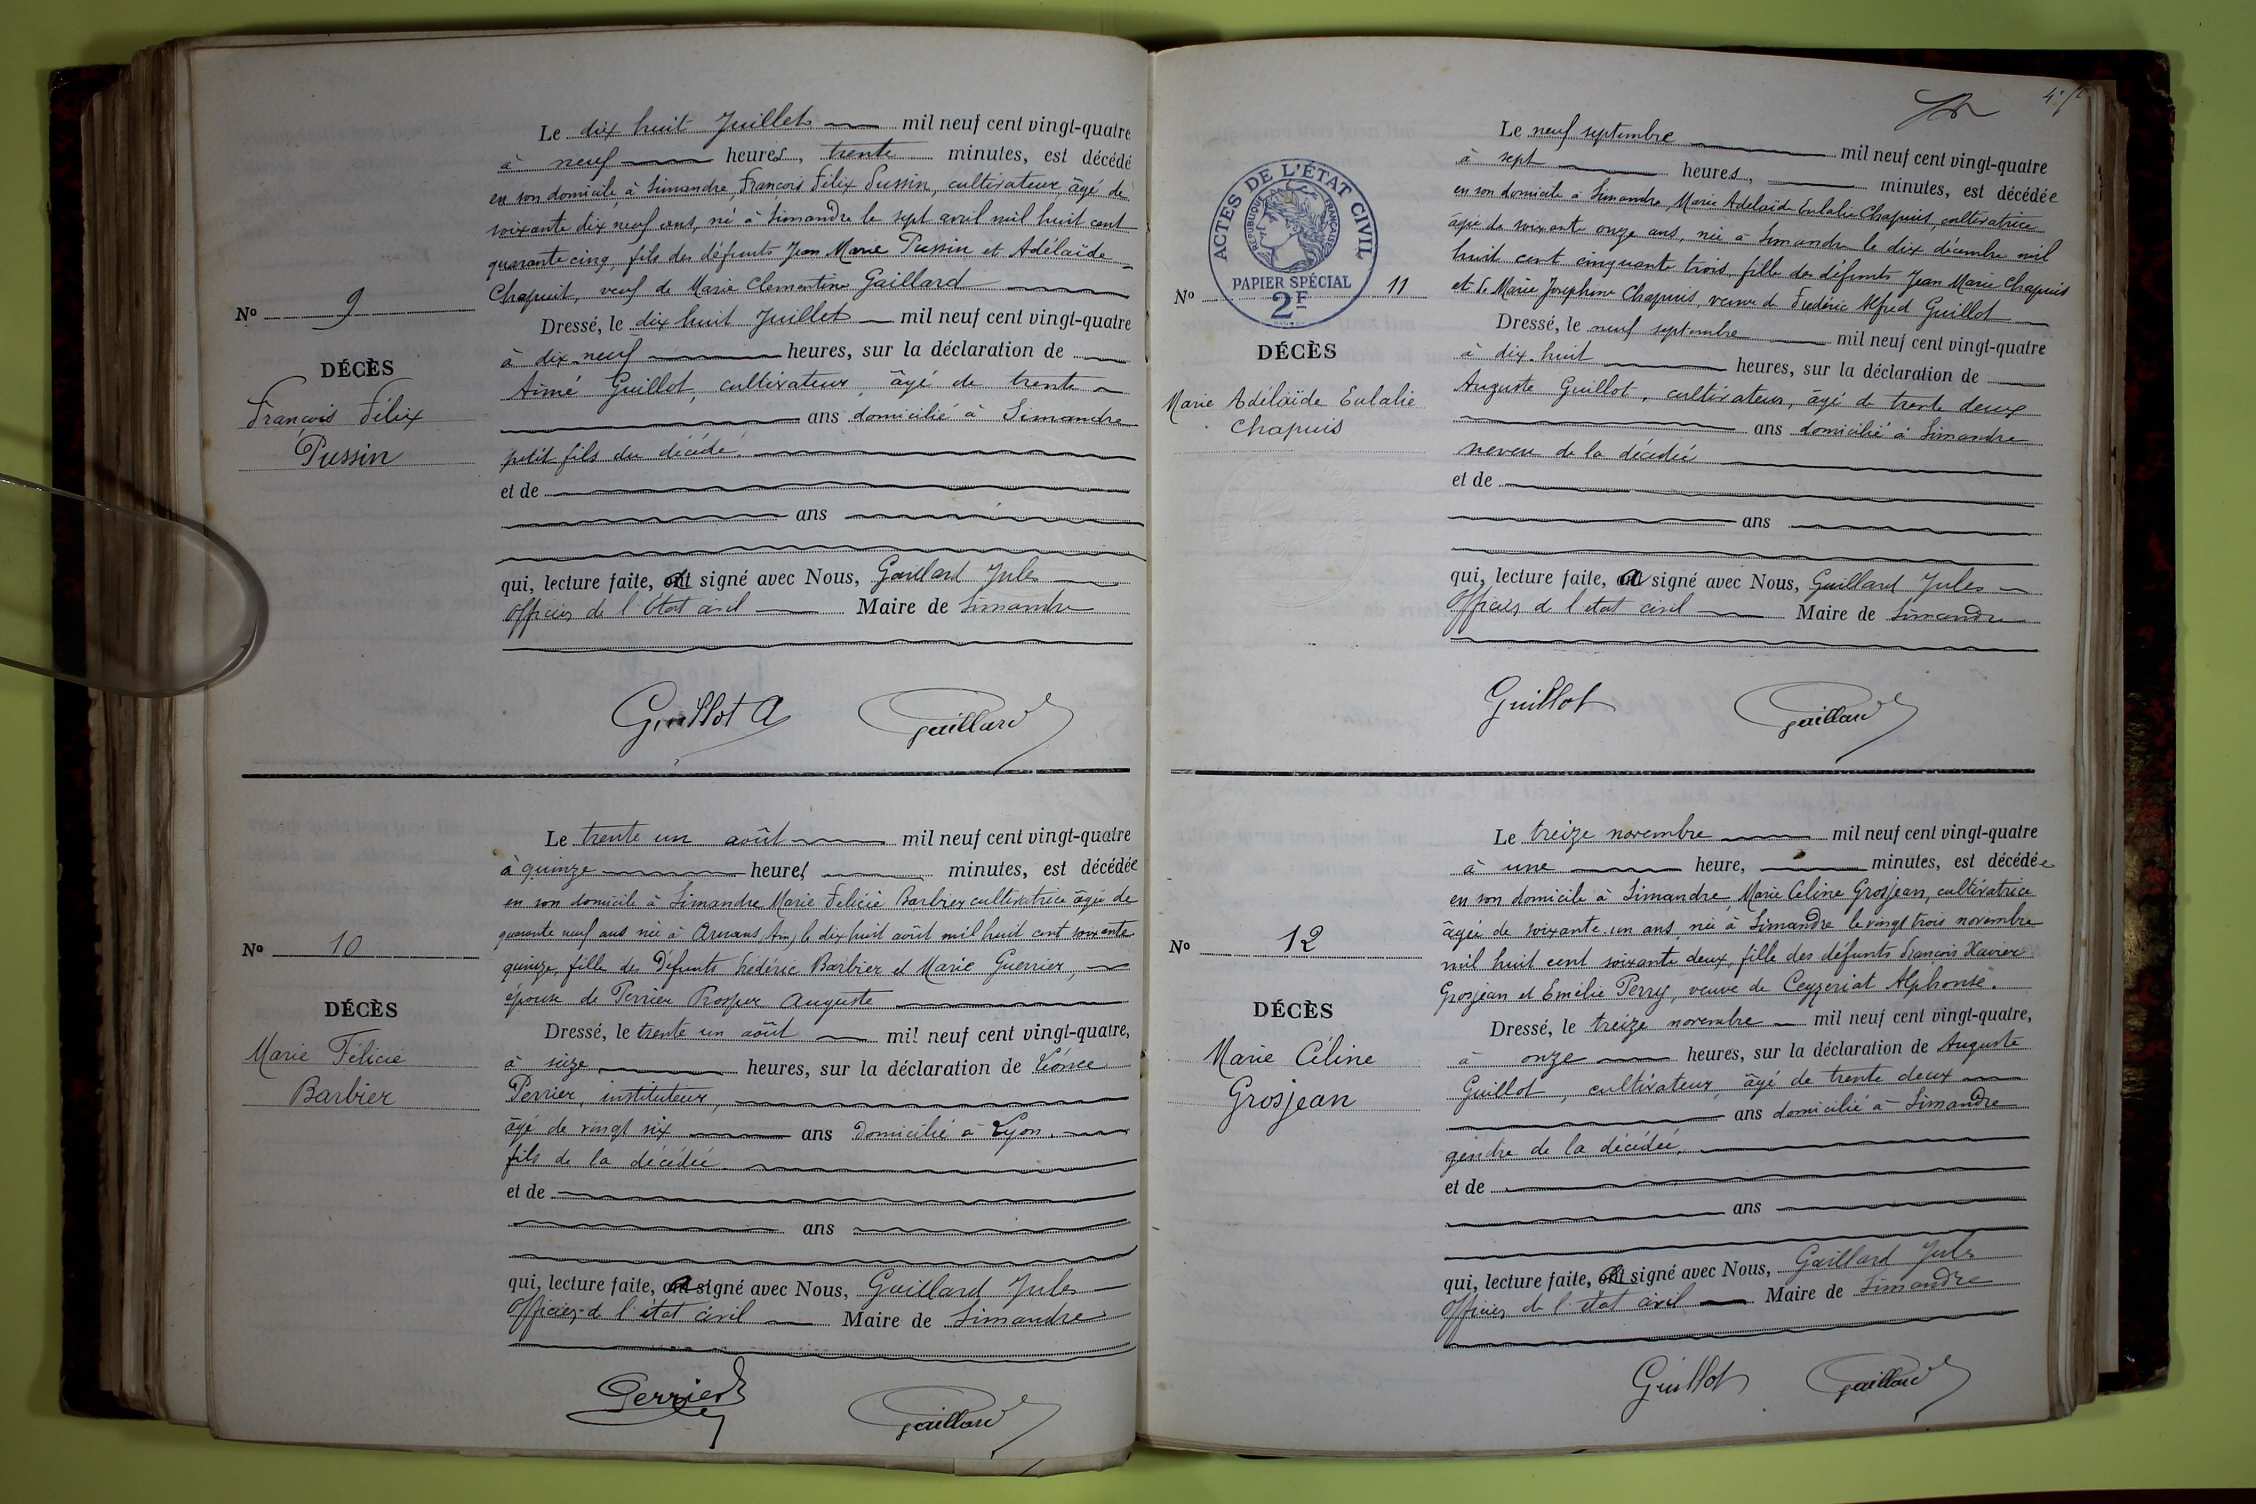 Le dix huit Juillet mil neuf cent vingt-quatre
à neuf heures, trente minutes, est décédé
en son domicile, à Simandre, François Félix Pussin, cultivateur, âgé de
soixante dix neuf ans, né à Simandre le sept avril mil huit cent
quarante cinq, fils des défunts Jean Marie Pussin et Adélaïde
Chapuit, veuf de Marie Clementine Gaillard
No 9
Dressé, le dix huit Juillet mil neuf cent vingt-quatre
à dix neuf heures, sur la déclaration de
DÉCÈS
Aimé Guillot, cultivateur, âgé de trente
François Félix
ans domicilié à Simandre
Pussin
petit fils du décédé.
et de
ans
qui, lecture faite, signé avec Nous, Gaillard Jules
Officier de l'état civil Maire de Simandre
Guillot A
Gaillard
Le trente un août mil neuf cent vingt-quatre
à quinze heures minutes, est décédée
en son domicile à Simandre Marie Félicie Barbier cultivatrice âgée de
quarante neuf ans née à Arnans, Ain, le dix huit août mil huit cent soixante
No 10
quinze, fille des Défunts Frédéric Barbier et Marie Guerrier,
épouse de Perrier Prosper Auguste
DÉCÈS
Dressé, le trente un août mil neuf cent vingt-quatre,
Marie Félicie
à seize heures, sur la déclaration de Léonce
Barbier
Perrier, instituteur,
âgé de vingt six ans domicilié à Lyon.
fils de la décédée.
et de
ans
qui, lecture faite, a signé avec Nous, Gaillard Jules
Officier de l'état civil Maire de Simandre
Perrier
Gaillard
Le neuf septembre mil neuf cent vingt-quatre
à sept heures, minutes, est décédée
en son domicile à Simandre, Marie Adelaïde Eulalie Chapuis, cultivatrice
âgée de soixante onze ans, née à Simandre le dix décembre mil
huit cent cinquante trois, fille des défunts Jean Marie Chapuis
et de Marie Josephine Chapuis, veuve d Frédéric Alfred Guillot
ACTES DE L'ÉTAT CIVIL
RÉPUBLIQUE FRANÇAISE
PAPIER SPÉCIAL
2F
No 11
Dressé, le neuf septembre mil neuf cent vingt-quatre
DÉCÈS
à dix-huit heures, sur la déclaration de
Marie Adélaïde Eulalie
Auguste Guillot, cultivateur, âgé de trente deux
Chapuis
ans domicilié à Simandre
neveu de la décédée
et de
ans
qui, lecture faite, a signé avec Nous, Gaillard Jules
Officier de l'etat civil Maire de Simandre
Guillot
Gaillard
Le treize novembre mil neuf cent vingt-quatre
à une heure, minutes, est décédée
en son domicile à Simandre Marie Céline Grosjean, cultivatrice
âgée de soixante un ans, née à Simandre le vingt trois novembre
No 12
mil huit cent soixante deux, fille des défunts François Xavier
Grosjean et Emélie Perry, veuve de Ceyzeriat Alphonse.
DÉCÈS
Dressé, le treize novembre mil neuf cent vingt-quatre,
Marie Céline
à onze heures, sur la déclaration de Auguste
Grosjean
Guillot, cultivateur, âgé de trente deux
ans domicilié à Simandre
gendre de la décédée.
et de
ans
qui, lecture faite, signé avec Nous, Gaillard Jules
Officier de l'état civil Maire de Simandre
Guillot
Gaillard